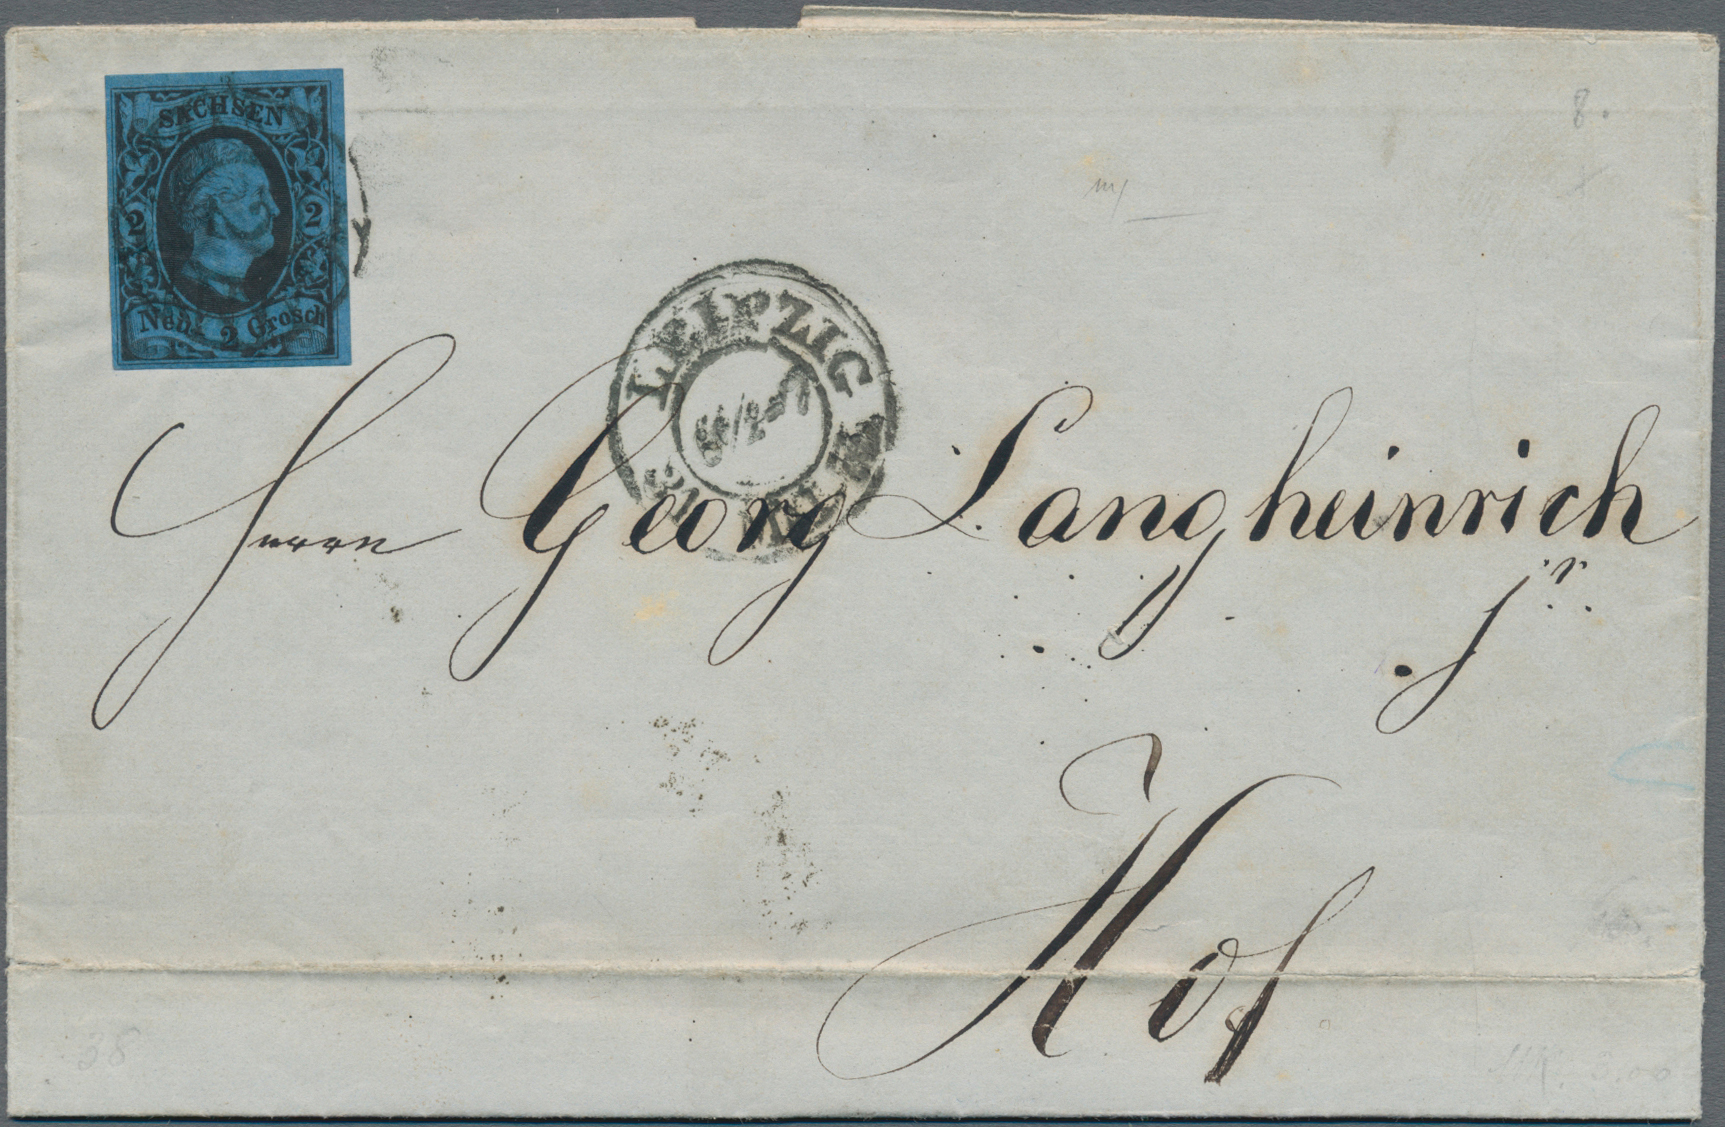 SACHSEN
2 2
Neu- 2 Grosch
LEIPZIG
8.
Herrn Georg Langheinrich
jr.
Hof
38